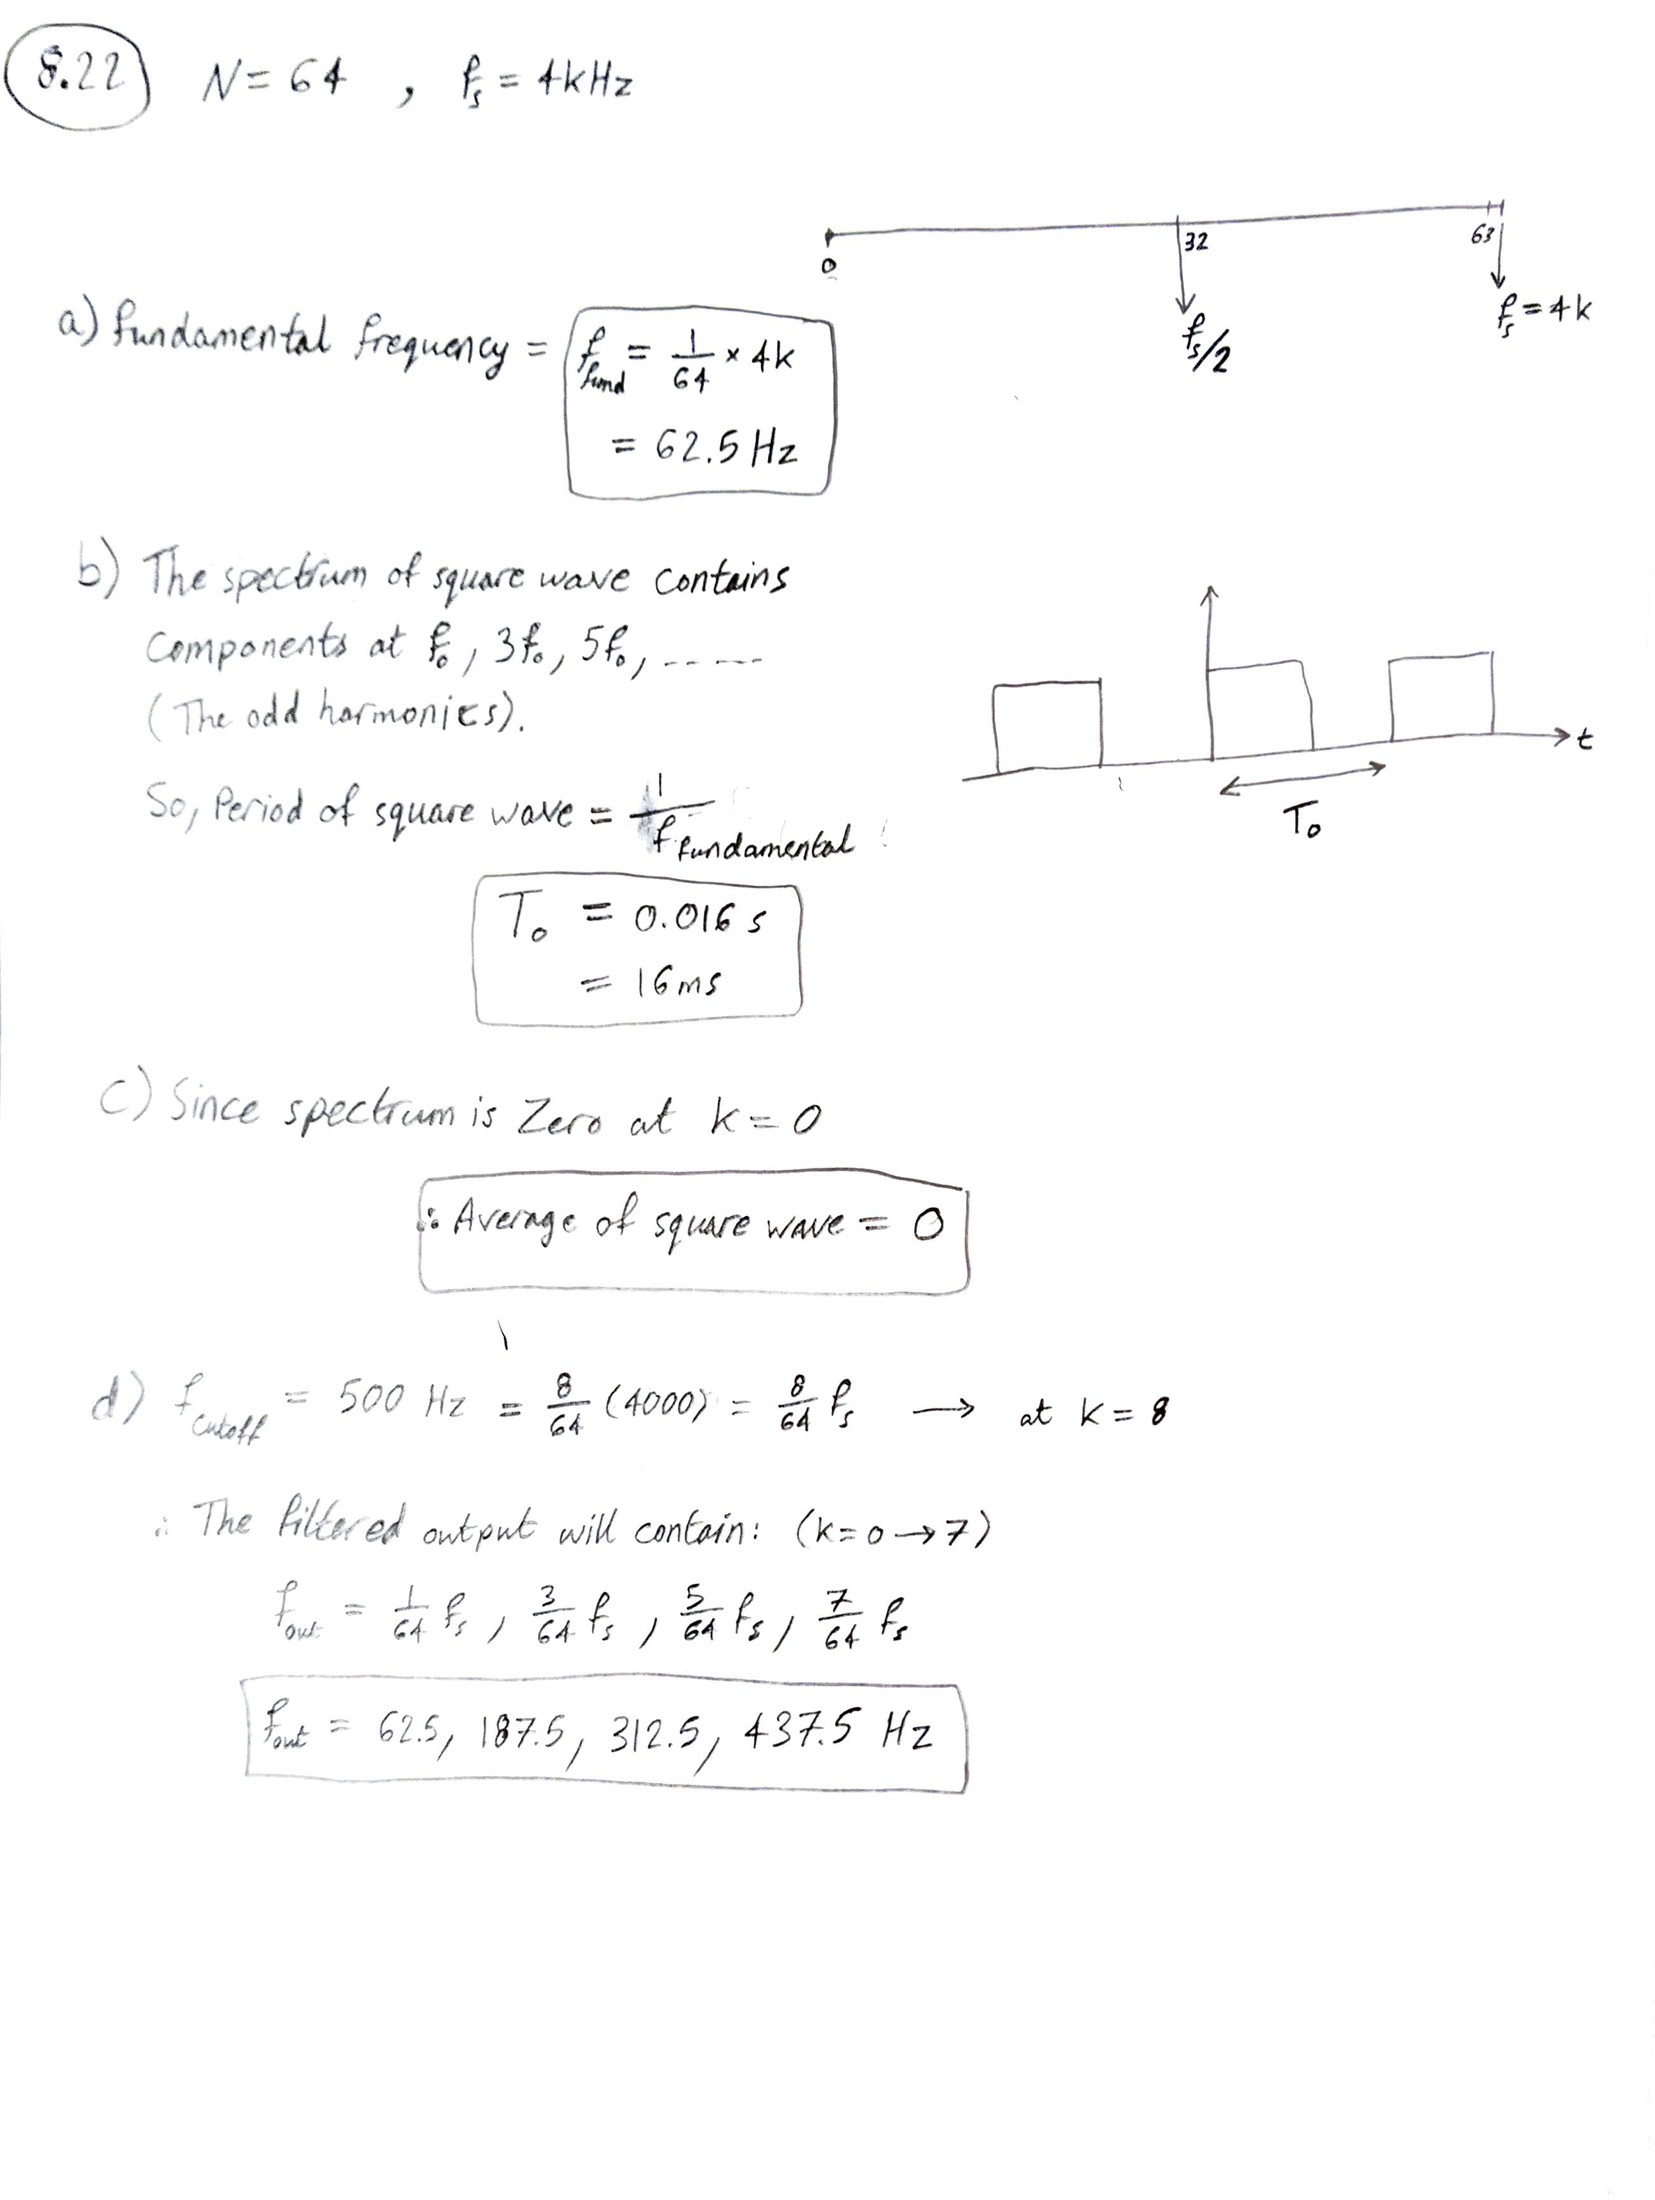 8.22 N = 64 , fs = 4kHz
0 32 63
fs/2 fs = 4k
a) fundamental frequency = f fund = 1/64 × 4k
= 62.5 Hz
b) The spectrum of square wave contains
Components at fo, 3fo, 5fo, -----
(The odd harmonics).
So, Period of square wave = 1/f fundamental
t
To
To = 0.016 s
= 16ms
c) Since spectrum is Zero at k = 0
∴ Average of square wave = 0
d) f cutoff = 500 Hz = 8/64 (4000) = 8/64 fs → at k = 8
∴ The filtered output will contain: (k=0→7)
fout = 1/64 fs, 3/64 fs, 5/64 fs, 7/64 fs
fout = 62.5, 187.5, 312.5, 437.5 Hz